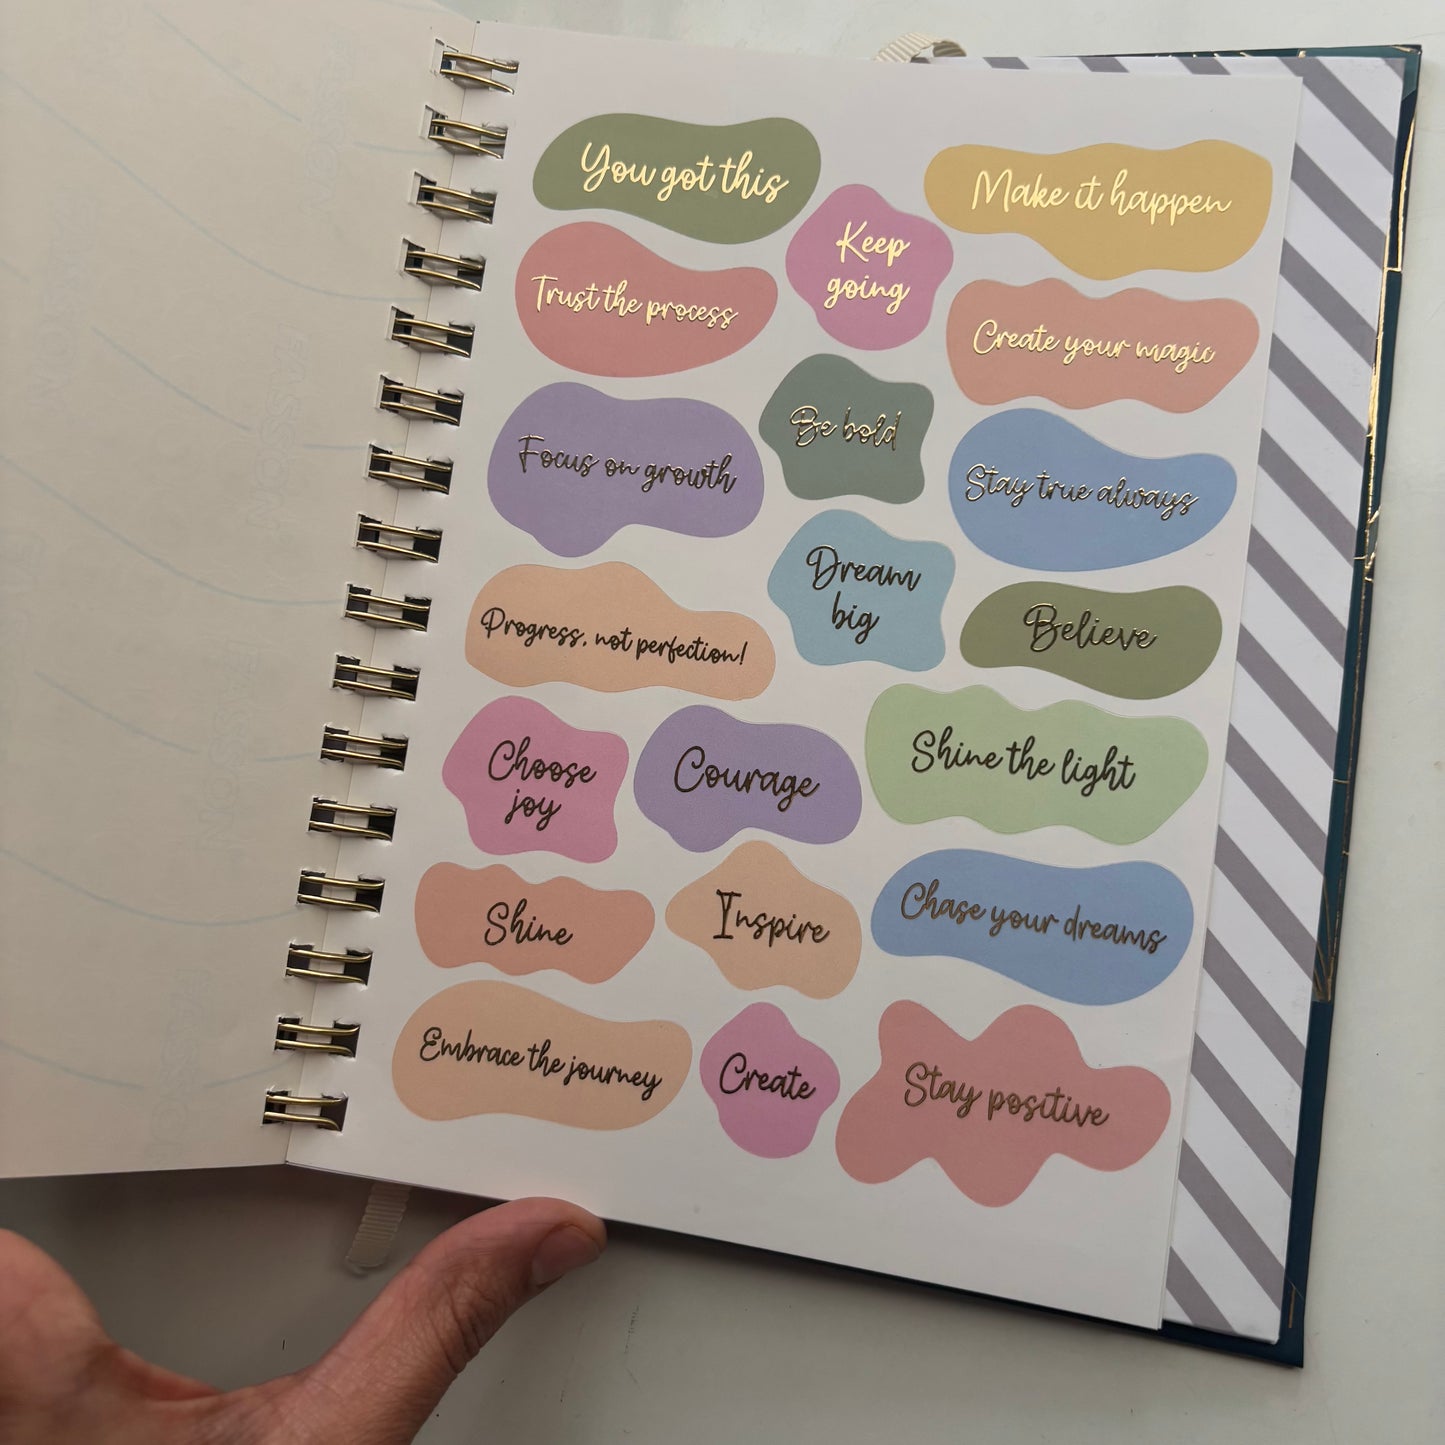 You got this
Make it happen
Keep
going
Trust the process
Create your magic
Be bold
Focus on growth
Stay true always
Dream
big
Progress, not perfection!
Believe
Choose
joy
Courage
Shine the light
Shine
Inspire
Chase your dreams
Embrace the journey
Create
Stay positive